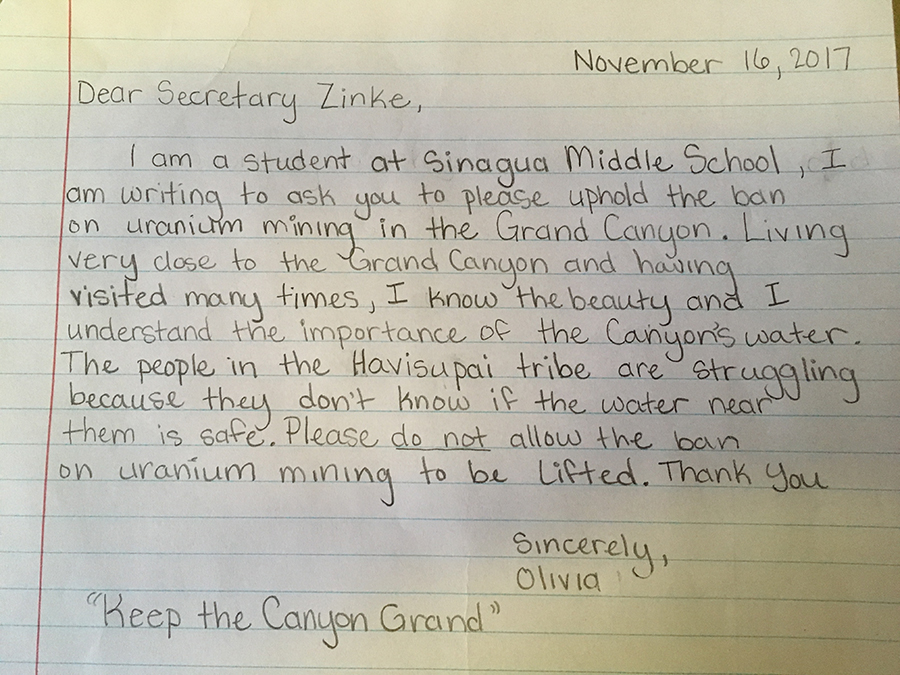 November 16, 2017
Dear Secretary Zinke,
I am a student at Sinagua Middle School, I
am writing to ask you to please uphold the ban
on uranium mining in the Grand Canyon. Living
very close to the Grand Canyon and having
visited many times, I know the beauty and I
understand the importance of the Canyon's water.
The people in the Havisupai tribe are struggling
because they don't know if the water near
them is safe. Please do not allow the ban
on uranium mining to be lifted. Thank you
Sincerely,
Olivia
"Keep the Canyon Grand"